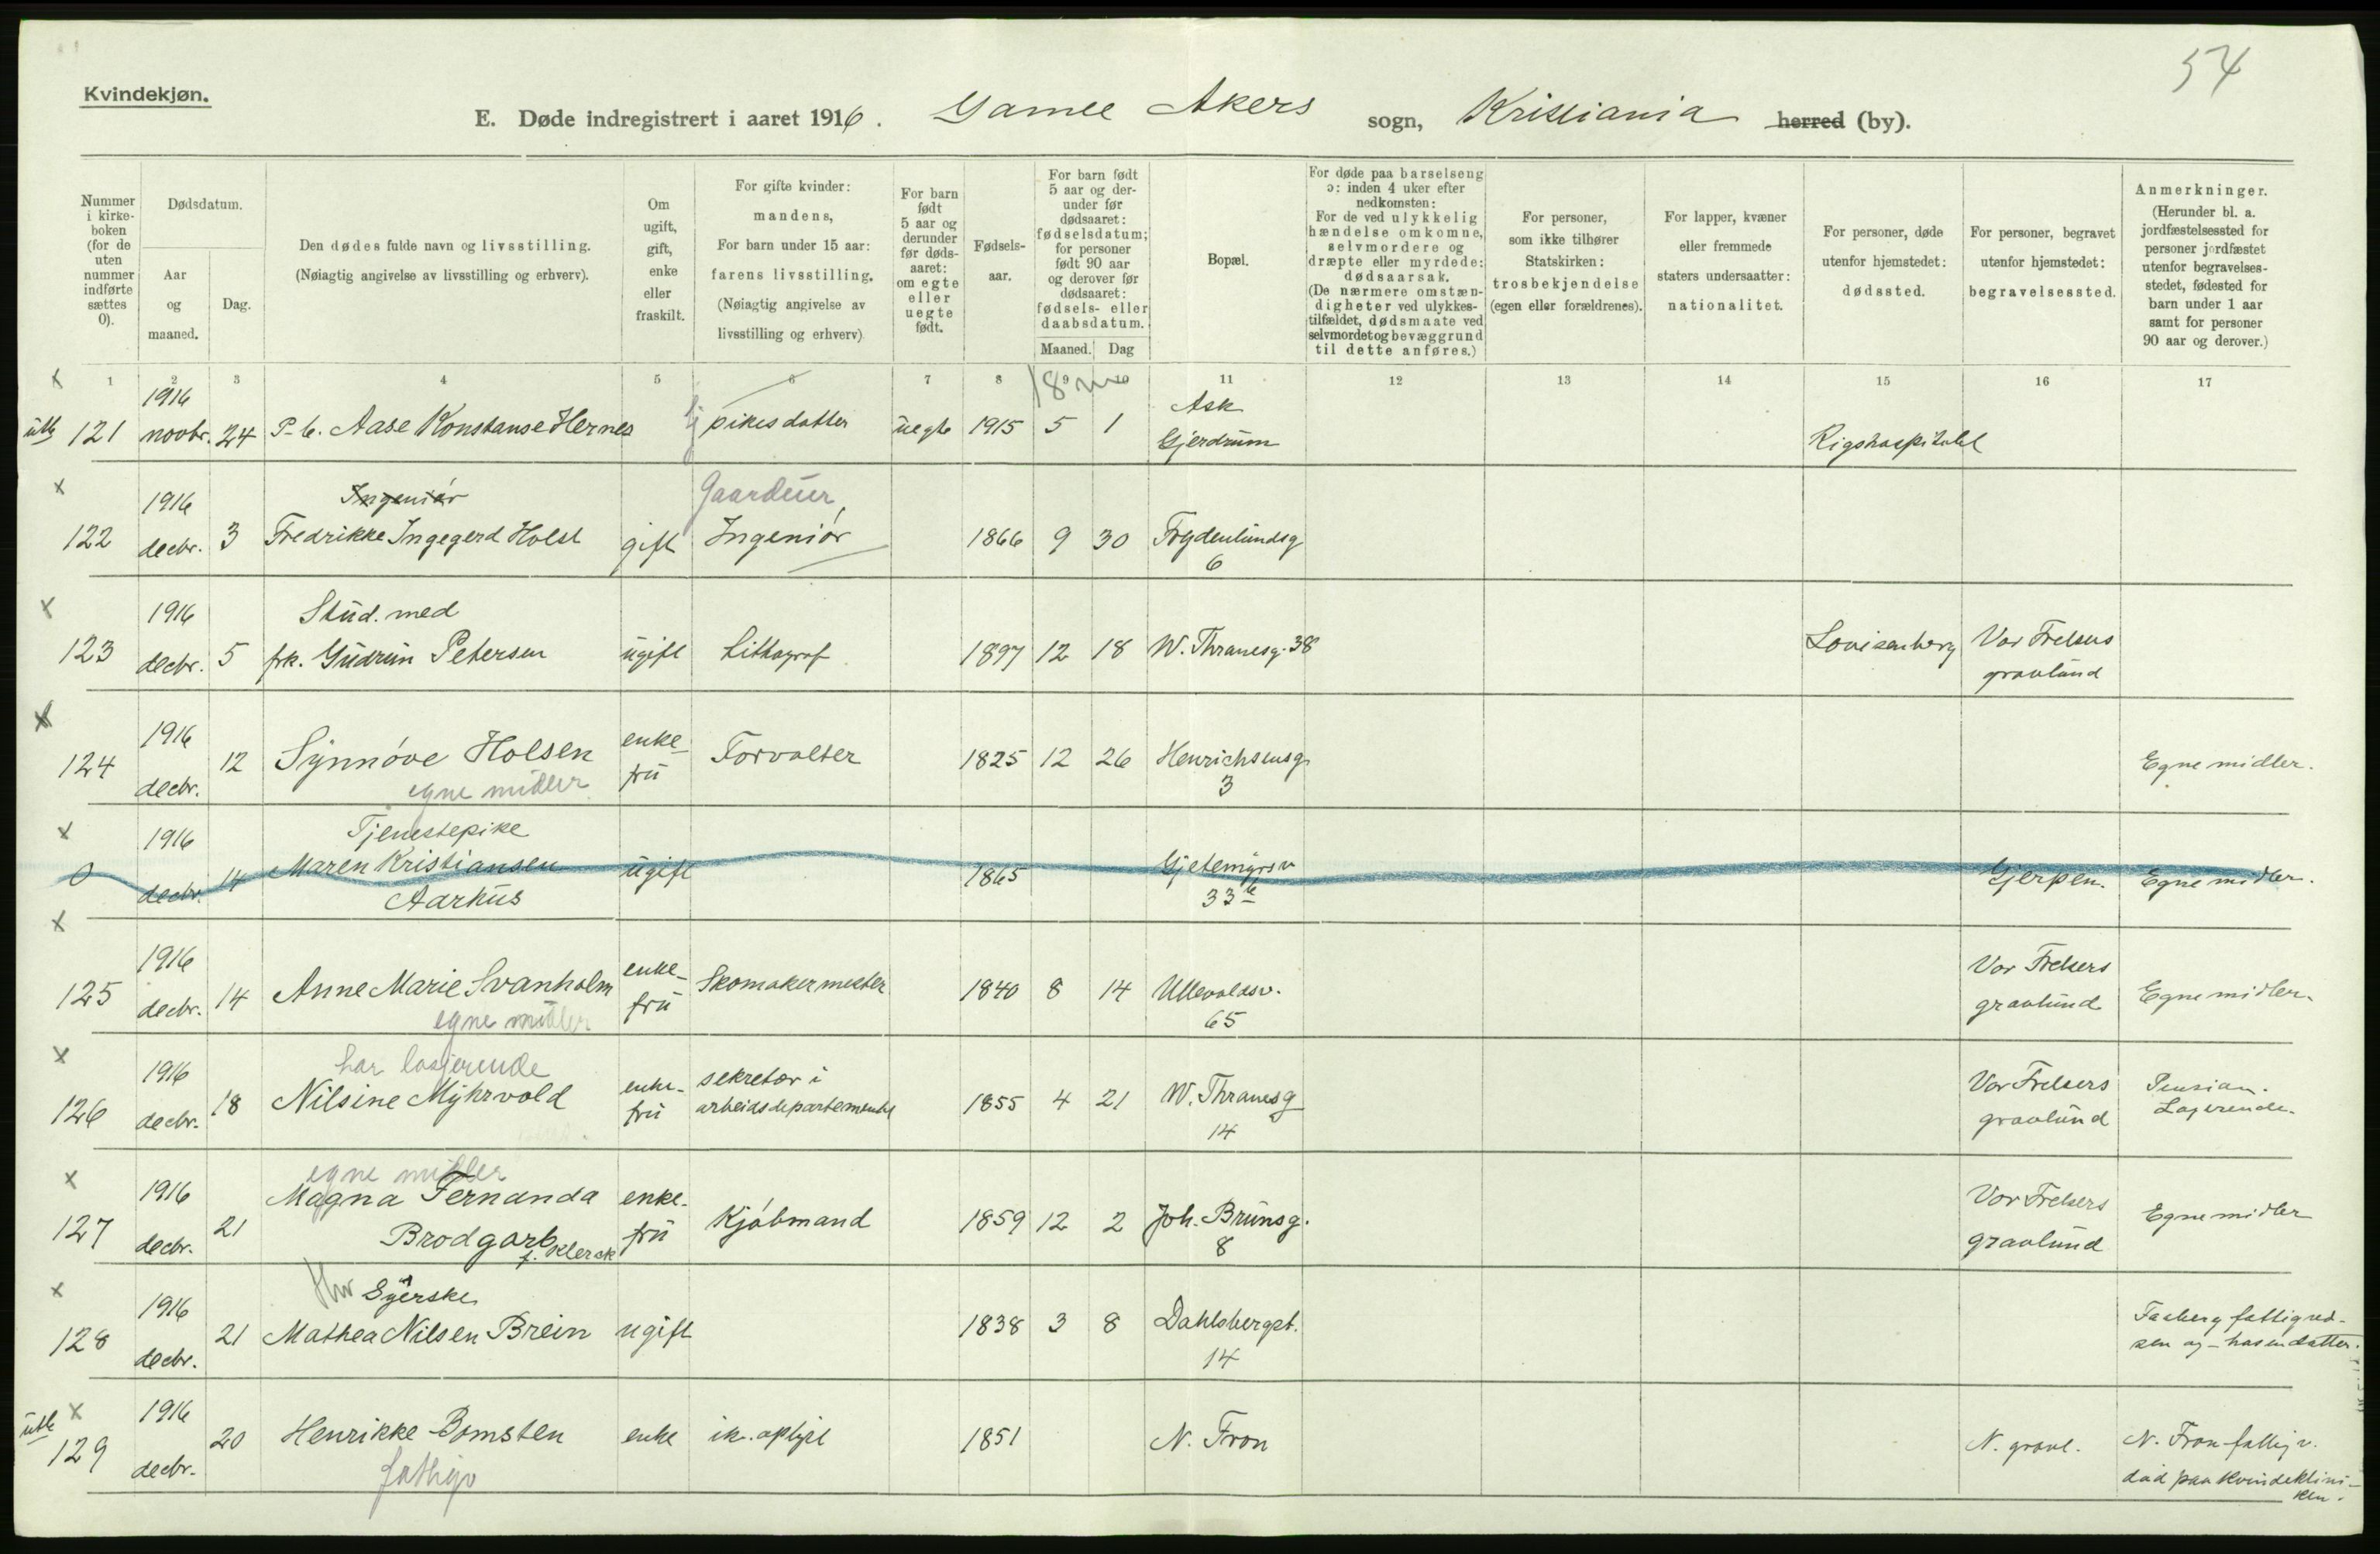 54
Kvindekjøn.
E. Døde indregistrert i aaret 1916. Gamle Akers sogn, Kristiania herred (by).
Nummer i kirke-boken (for de uten nummer indførte sættes 0).
Dødsdatum.
Aar og maaned.
Dag.
Den dødes fulde navn og livsstilling.
(Nøiagtig angivelse av livsstilling og erhverv).
Om ugift, gift, enke eller fraskilt.
For gifte kvinder: mandens,
For barn under 15 aar: farens livsstilling.
(Nøiagtig angivelse av livsstilling og erhverv)
For barn født 5 aar og derunder før døds-aaret: om egte eller uegte født.
Fødsels-aar.
For barn født 5 aar og der-under før dødsaaret: fødselsdatum; for personer født 90 aar og derover før dødsaaret: fødsels- eller daabsdatum.
Maaned. Dag
Bopæl.
For døde paa barselseng ɔ: inden 4 uker efter nedkomsten:
For de ved ulykkelig hændelse omkomne, selvmordere og dræpte eller myrdede: dødsaarsak.
(De nærmere omstæn-digheter ved ulykkes-tilfældet, dødsmaate ved selvmordet og bevæggrund til dette anføres.)
For personer, som ikke tilhører Statskirken: trosbekjendelse (egen eller forældrenes).
For lapper, kvæner eller fremmede staters undersaatter: nationalitet.
For personer, døde utenfor hjemstedet: dødssted.
For personer, begravet utenfor hjemstedet: begravelsessted.
Anmerkninger.
(Herunder bl. a. jordfæstelsessted for personer jordfæstet utenfor begravelses-stedet, fødested for barn under 1 aar samt for personer 90 aar og derover.)
1 2 3 4 5 6 7 8 9 10 11 12 13 14 15 16 17
x 1916 18 m Ask
utb 121 novbr. 24 P-b. Aase Konstanse Hernes pikes datter uegte 1915 5 1 Gjerdrum Rigshospitalet
x 1916 Ingeniør Gaardeier,
122 decbr. 3 Fredrikke Ingegerd Holst gift Ingeniør 1866 9 30 Frydenlundsg
6
x 1916 Stud. med
123 decbr. 5 frk. Gudrun Petersen ugift Lithograf 1897 12 18 W. Thranesg. 38 Lovisenberg Vor Frelsers
gravlund
x 1916 enke-
124 decbr. 12 Synnøve Holsen fru Forvalter 1825 12 26 Henrichsensg. Egne midler.
egne midler 3
x 1916 Tjenestepike
0 decbr. 14 Maren Kristiansen ugift 1865 Gjetemyrsv Gjerpen. Egne midler.
Aarhus 33
x 1916 enke- Vor Frelsers
125 decbr. 14 Anne Marie Svanholm fru Skomakermester 1840 8 14 Ullevoldsv. gravlund Egne midler.
egne midler 65
x 1916 har losjerende enke- sekretær i Vor Frelsers Pension.
126 decbr. 18 Nilsine Myhrvold fru arbeidsdepartementet 1855 4 21 W. Thranesg gravlund Losjerende.
14
x egne midler
1916 Magna Fernanda enke- Vor Frelsers
127 decbr. 21 Brodgarb fru Kjøbmand 1859 12 2 Joh. Brunsg. gravlund Egne midler
f. Klerck 8
x 1916 Syerske Faaberg fattigvæ-
128 decbr. 21 Mathea Nilsen Brein ugift 1838 3 8 Dahlsbergst. sen og – hos en datter.
14
utb x 1916
129 decbr. 20 Henrikke Bomsten enke ik. oplyst 1851 N. Fron N. gravl. N. Fron fattigv.
fattigv død paa Kvindeklini-
ken.